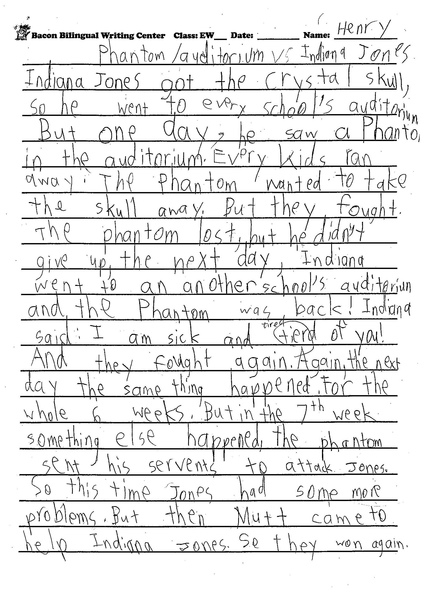 Bacon Bilingual Writing Center Class: EW__ Date: ______ Name: Henry
Phantom/auditorium VS Indiana Jones
Indiana Jones got the crystal skull,
so he went to every school's auditorium
But one day, he saw a Phanto
in the auditorium. Every kids ran
away. The Phantom wanted to take
the skull away. But they fought.
The phantom lost, but he didn't
give up, the next day, Indiana
went to an another school's auditorium
and the Phantom was back! Indiana
said: I am sick and tierd of you!
tired
And they fought again. Again, the next
day the same thing happened. For the
whole 6 weeks. But in the 7th week
something else happened, the phantom
sent his servents to attack Jones.
So this time Jones had some more
problems. But then Mutt came to
help Indiana Jones. So they won again.